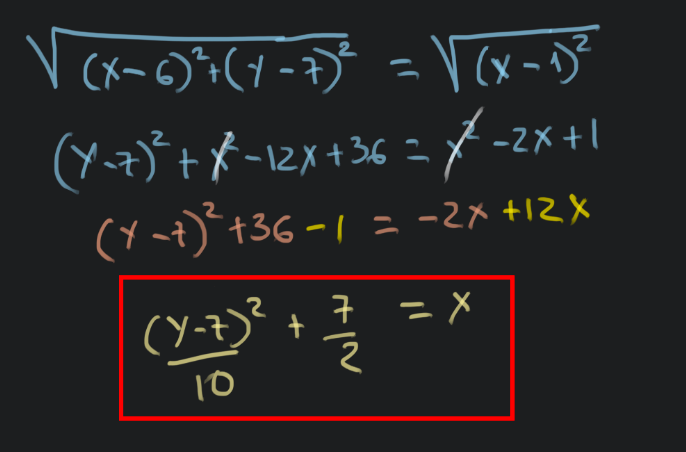 √((x-6)²+(y-7)²) = √((x-1)²)
(y-7)² + x² -12x+36 = x² -2x+1
(y-7)²+36-1 = -2x+12x
(y-7)²/10 + 7/2 = x